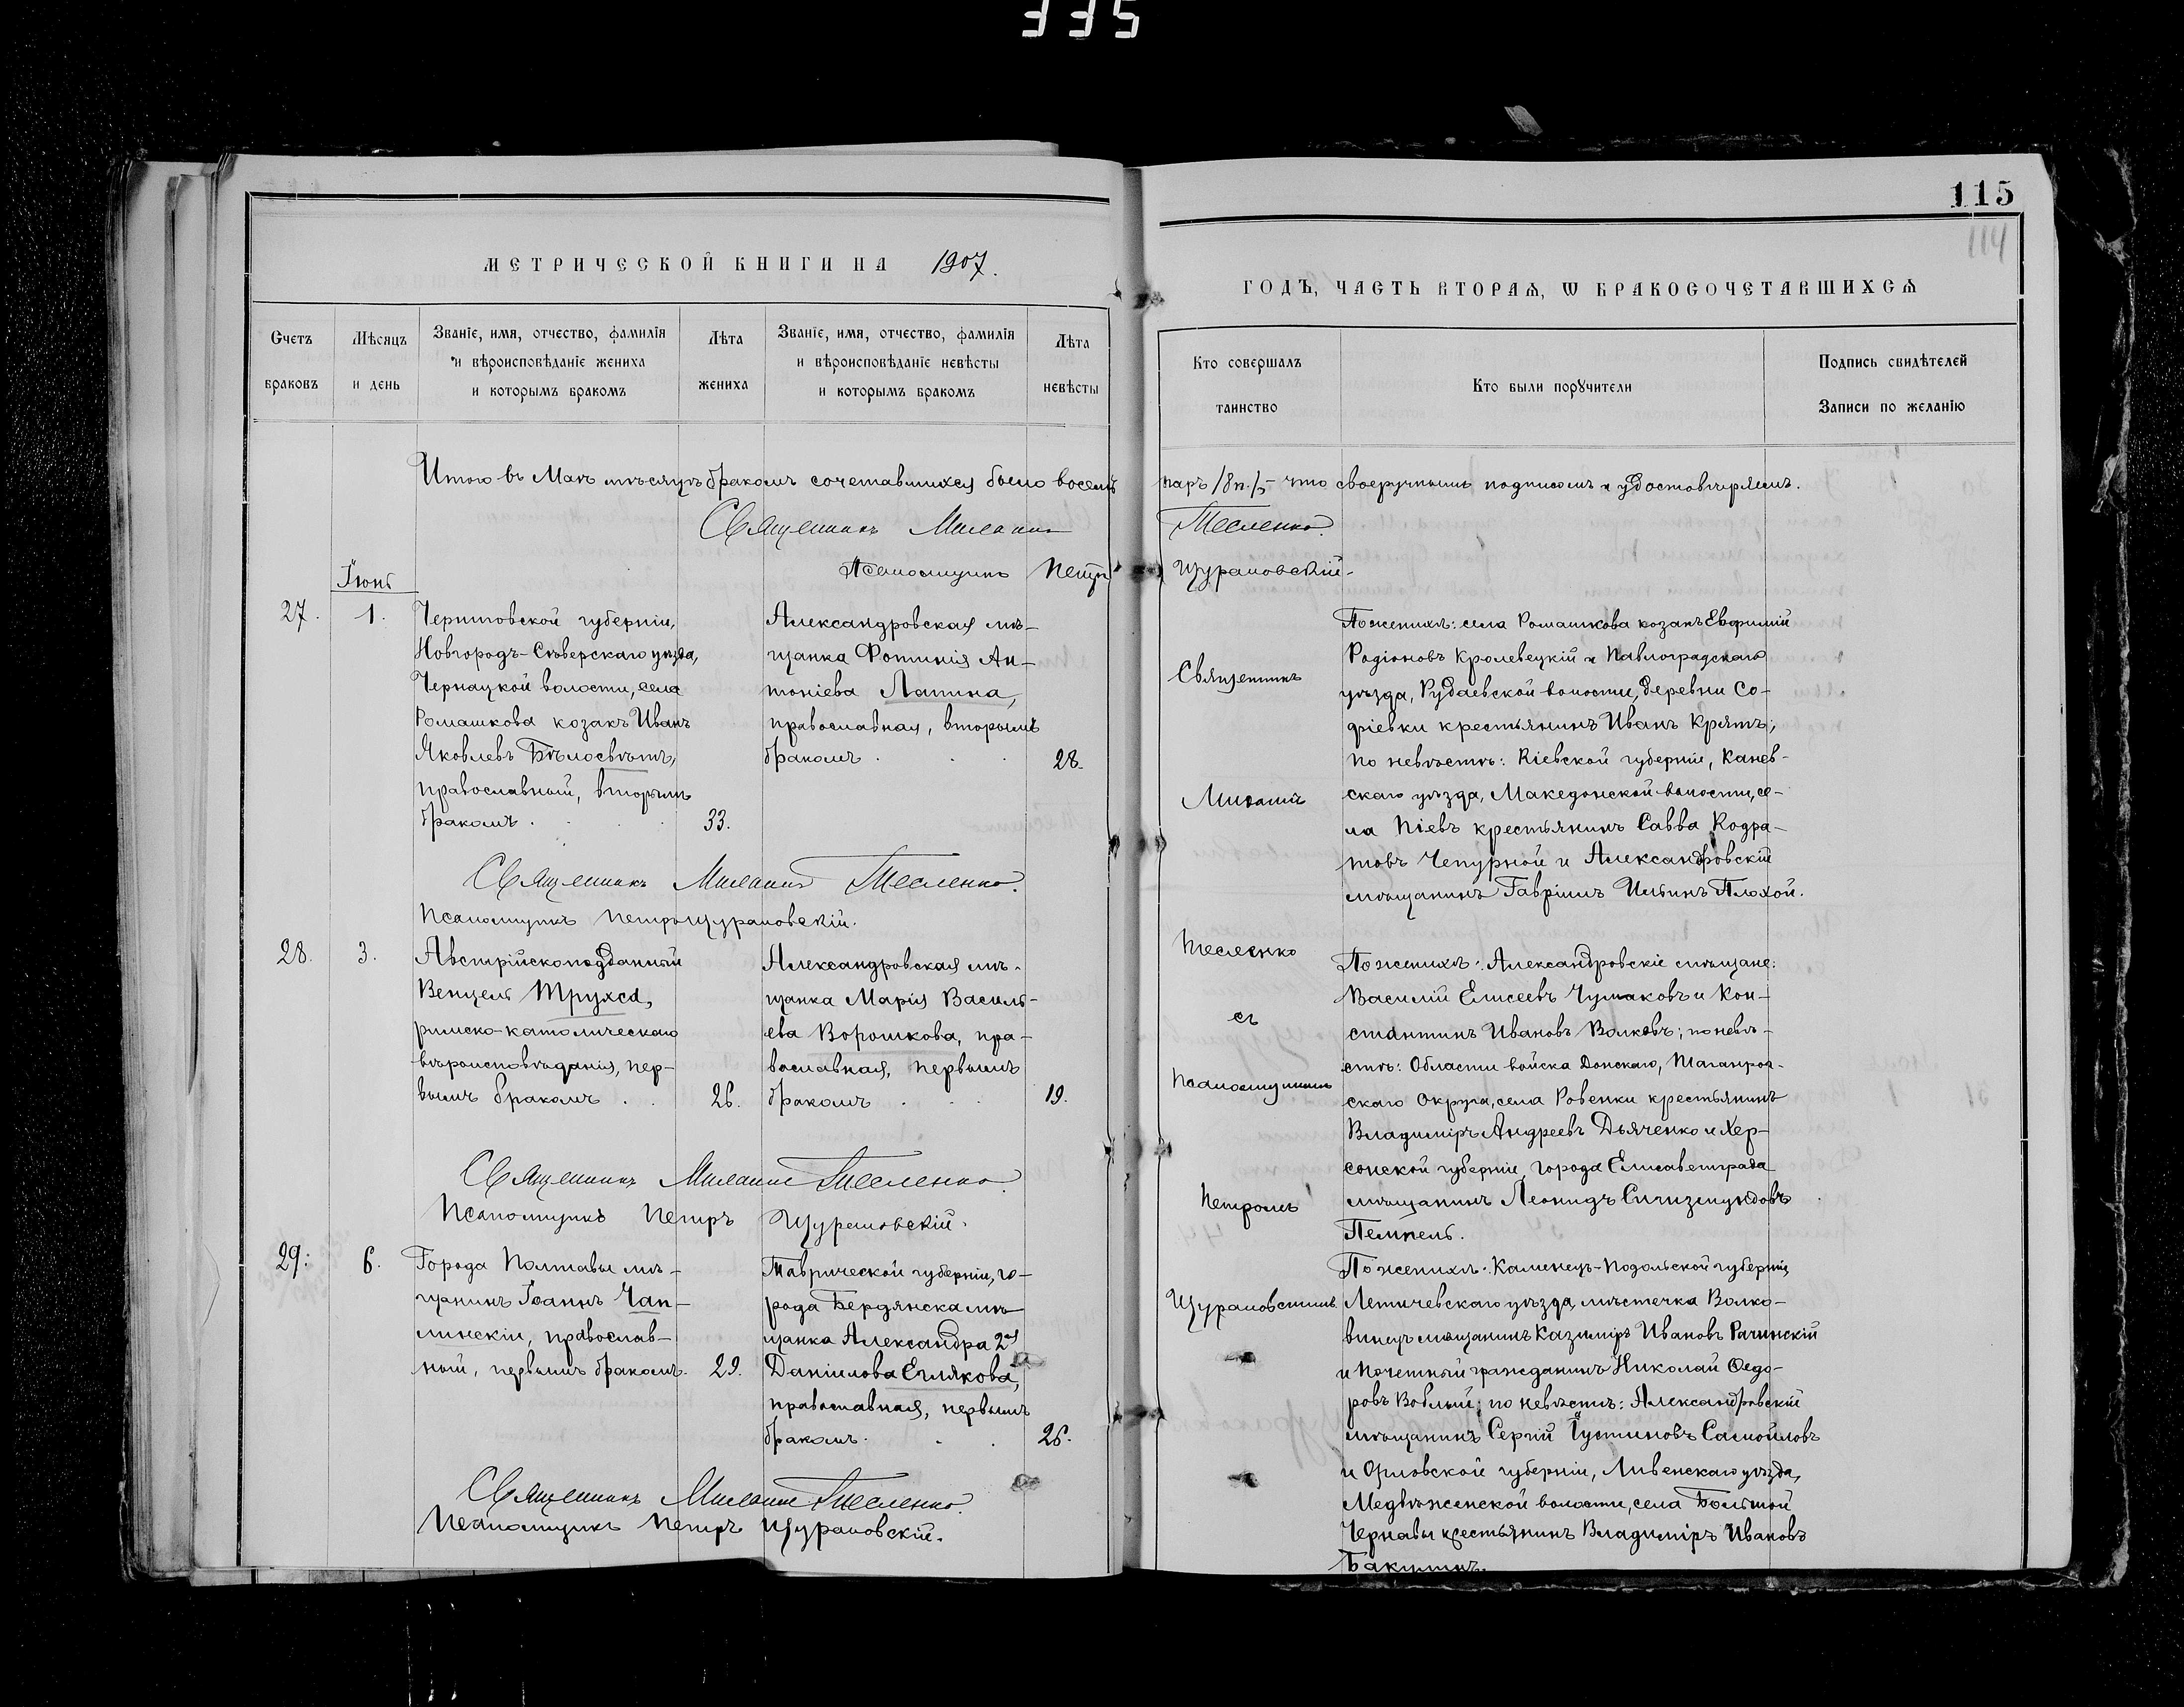 335
115
114
МЕТРИЧЕСКОЙ КНИГИ НА 1907.
ГОДЪ, ЧАСТЬ ВТОРАѦ, Ѡ БРАКОСОЧЕТАВШИХСѦ
Счетъ браковъ
Мѣсяцъ и день
Званіе, имя, отчество, фамилія
и вѣроисповѣданіе жениха
и которымъ бракомъ
Лѣта жениха
Званіе, имя, отчество, фамилія
и вѣроисповѣданіе невѣсты
и которымъ бракомъ
Лѣта невѣсты
Кто совершалъ таинство
Кто были порꙋчители
Подпись свидѣтелей
Записи по желанію
Итого въ Маѣ мѣсяцѣ бракомъ сочетавшихся было восемь паръ /8 п./ – что своеручнымъ подписомъ и удостовѣряемъ.
Священникъ Тесленко.
Псаломщикъ Петръ Щурановскій.
Іюнь
27.
1.
Черниговской губерніи,
Новгородъ-Сѣверскаго уѣзда,
волости, села
Ромашкова козакъ Иванъ
Яковлевъ Бѣлосвѣтъ,
православный, вторымъ
бракомъ.
33.
Александровская мѣ-
щанка Фотинія Ан-
тоніева Лапина,
православная, вторымъ
бракомъ.
28.
По женихѣ: села Ромашкова козакъ Евфимій
Родіоновъ Кролевецкій и Павлоградскаго
уѣзда, волости, деревни Со-
фіевки крестьянинъ Иванъ
по невѣстѣ: Кіевской губерніи, Канев-
скаго уѣзда, Македонской волости, се-
ла Піевъ крестьянинъ Савва Кодра-
товъ Чепурной и Александровскій
мѣщанинъ Гавріилъ Ильинъ Плохой.
Священникъ Тесленко.
Псаломщикъ Петръ Щурановскій.
28.
3.
Австрійскоподданный
Венцель Трухса,
римско-католическаго
вѣроисповѣданія, пер-
вымъ бракомъ.
26.
Александровская мѣ-
щанка Марія Василь-
ева Ворошкова, пра-
вославная, первымъ
бракомъ
19.
По женихѣ: Александровскіе мѣщане:
Василій Елисеевъ Чумаковъ и Кон-
стантинъ Ивановъ Волковъ; по невѣ-
стѣ: Области войска Донскаго, Таганрог-
скаго Округа, села Ровенки крестьянинъ
Владиміръ Андреевъ Дьяченко и Хер-
сонской губерніи, города Елисаветграда
мѣщанинъ Леонидъ Сигизмундовъ
Темпель.
Священникъ Тесленко.
Псаломщикъ Петръ Щурановскій.
29.
6.
Города Полтавы мѣ-
щанинъ Іоаннъ Чап-
линскій, православ-
ный, первымъ бракомъ.
29.
Таврической губерніи, го-
рода Бердянска мѣ-
щанка Александра 2я
Даніилова
православная, первымъ
бракомъ.
26.
По женихѣ: Каменецъ-Подольской губерніи,
Летичевскаго уѣзда, мѣстечка Волко-
винецъ мѣщанинъ Казиміръ Ивановъ Рачинскій
и Почетный гражданинъ Николай Ѳедо-
ровъ Воблый; по невѣстѣ: Александровскій
мѣщанинъ Сергій Іустиновъ Самойловъ
и Орловской губерніи, Ливенскаго уѣзда,
волости, села Большой
Чернавы крестьянинъ Владиміръ Ивановъ
Священникъ Тесленко.
Псаломщикъ Петръ Щурановскій.
Священникъ
Тесленко
съ
Псаломщикомъ
Петромъ
Щурановскимъ